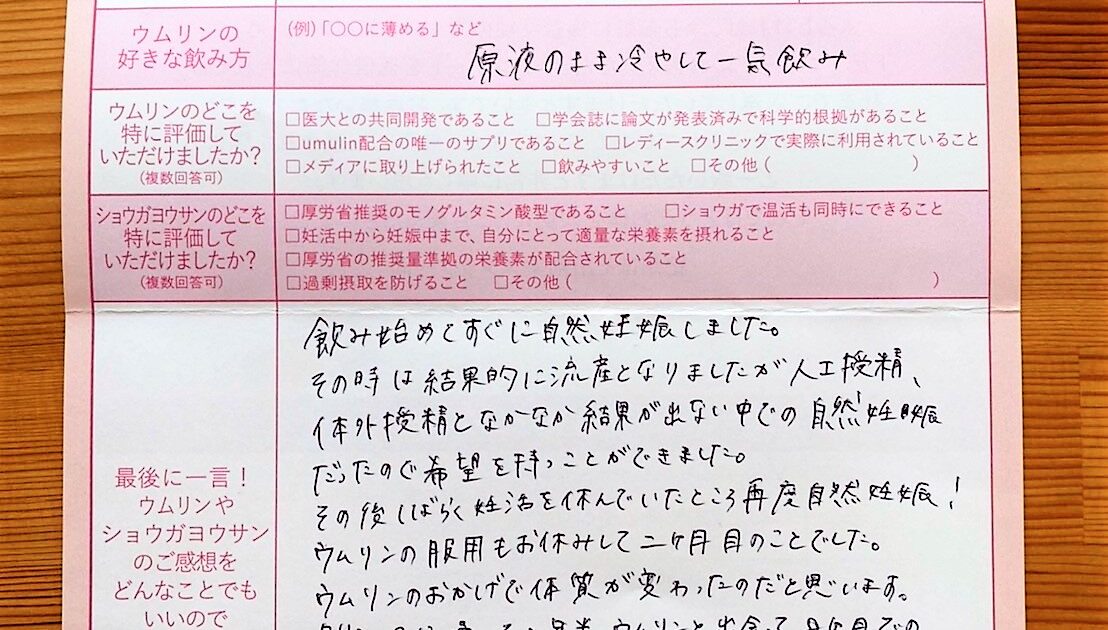 ウムリンの
好きな飲み方
(例)「〇〇に薄める」など
原液のまま冷やして一気飲み
ウムリンのどこを
特に評価して
いただけましたか?
(複数回答可)
□医大との共同開発であること □学会誌に論文が発表済みで科学的根拠があること
□umulin配合の唯一のサプリであること □レディースクリニックで実際に利用されていること
□メディアに取り上げられたこと □飲みやすいこと □その他 ( )
ショウガヨウサンのどこを
特に評価して
いただけましたか?
(複数回答可)
□厚労省推奨のモノグルタミン酸型であること □ショウガで温活も同時にできること
□妊活中から妊娠中まで、自分にとって適量な栄養素を摂れること
□厚労省の推奨量準拠の栄養素が配合されていること
□過剰摂取を防げること □その他 ( )
最後に一言!
ウムリンや
ショウガヨウサン
のご感想を
どんなことでも
いいので
飲み始めてすぐに自然妊娠しました。
その時は結果的に流産となりましたが人工授精、
体外授精となかなか結果が出ない中での自然妊娠
だったので希望を持つことができました。
その後しばらく妊活を休んでいたところ再度自然妊娠!
ウムリンの服用もお休みして二ヶ月目のことでした。
ウムリンのおかげで体質が変わったのだと思います。
ウムリンと出会って